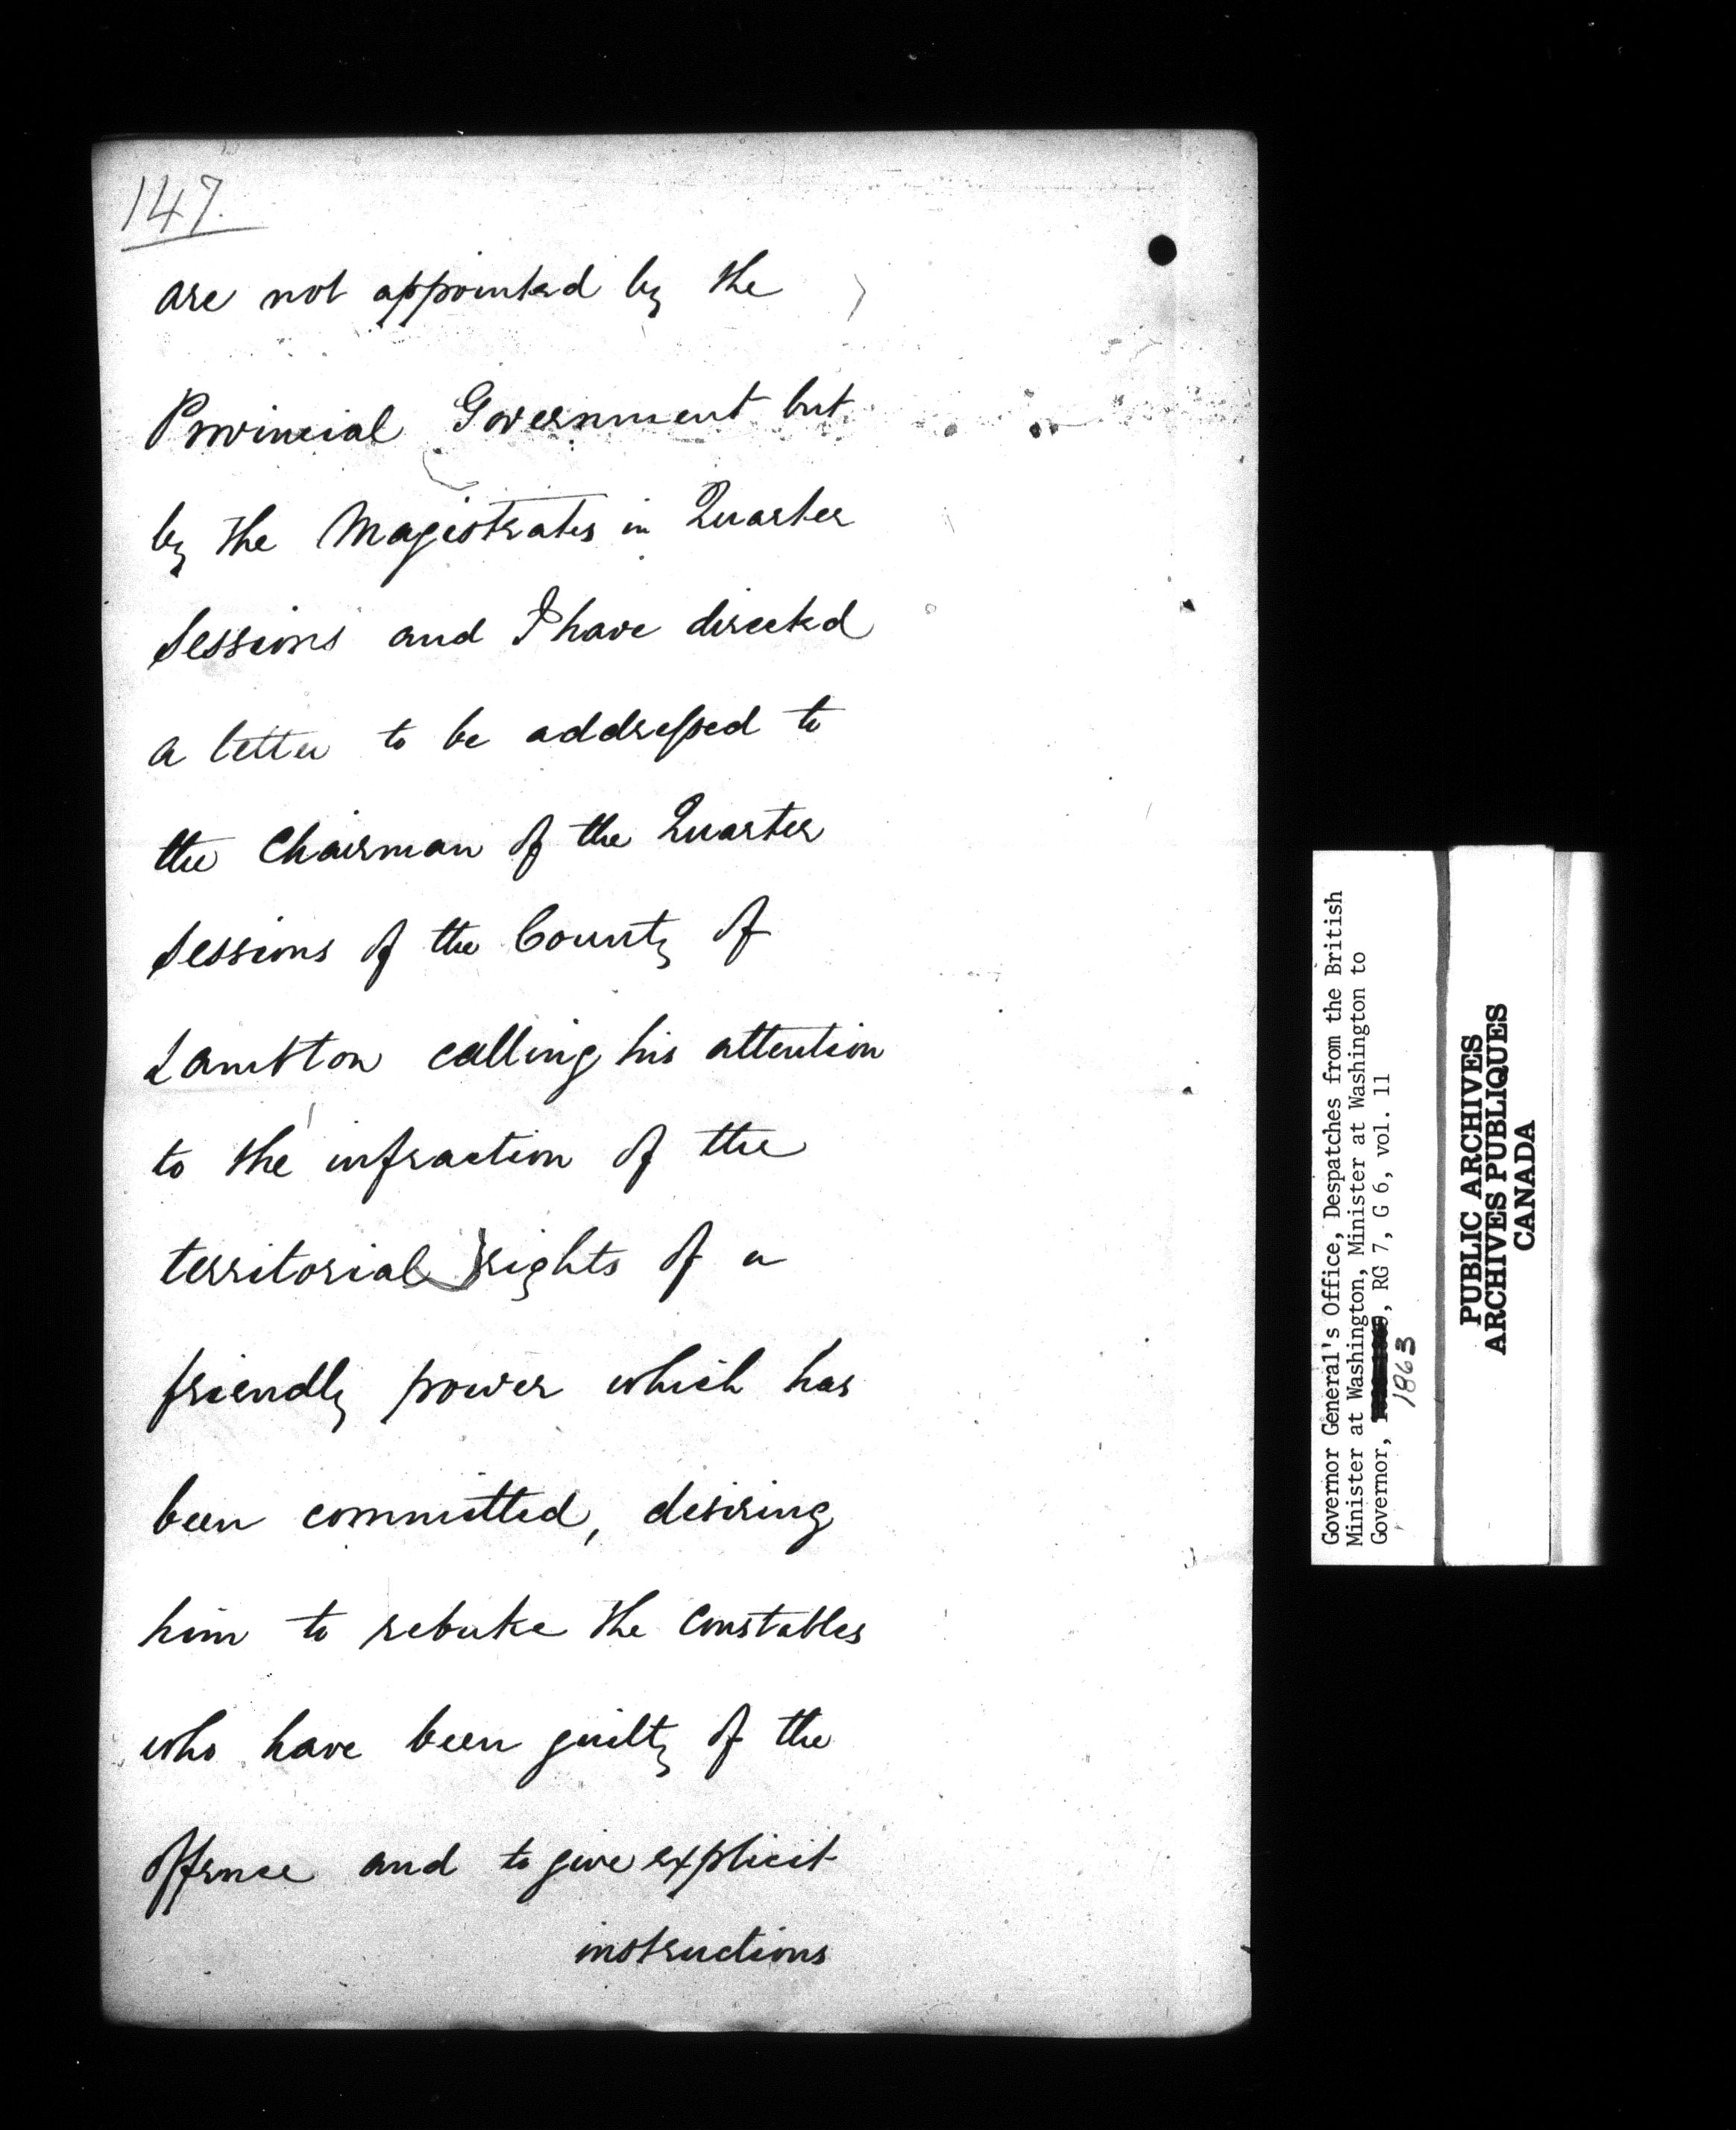 147.
are not appointed by the
Provincial Government but
by the Magistrates in Quarter
Sessions and I have directed
a letter to be addressed to
the Chairman of the Quarter
Sessions of the County of
Lambton calling his attention
to the infraction of the
territorial rights of a
friendly power which has
been committed, desiring
him to rebuke the Constables
who have been guilty of the
offence and to give explicit
instructions
Governor General's Office, Despatches from the British
Minister at Washington, Minister at Washington to
Governor, , RG 7, G 6, vol. 11
1863
PUBLIC ARCHIVES
ARCHIVES PUBLIQUES
CANADA